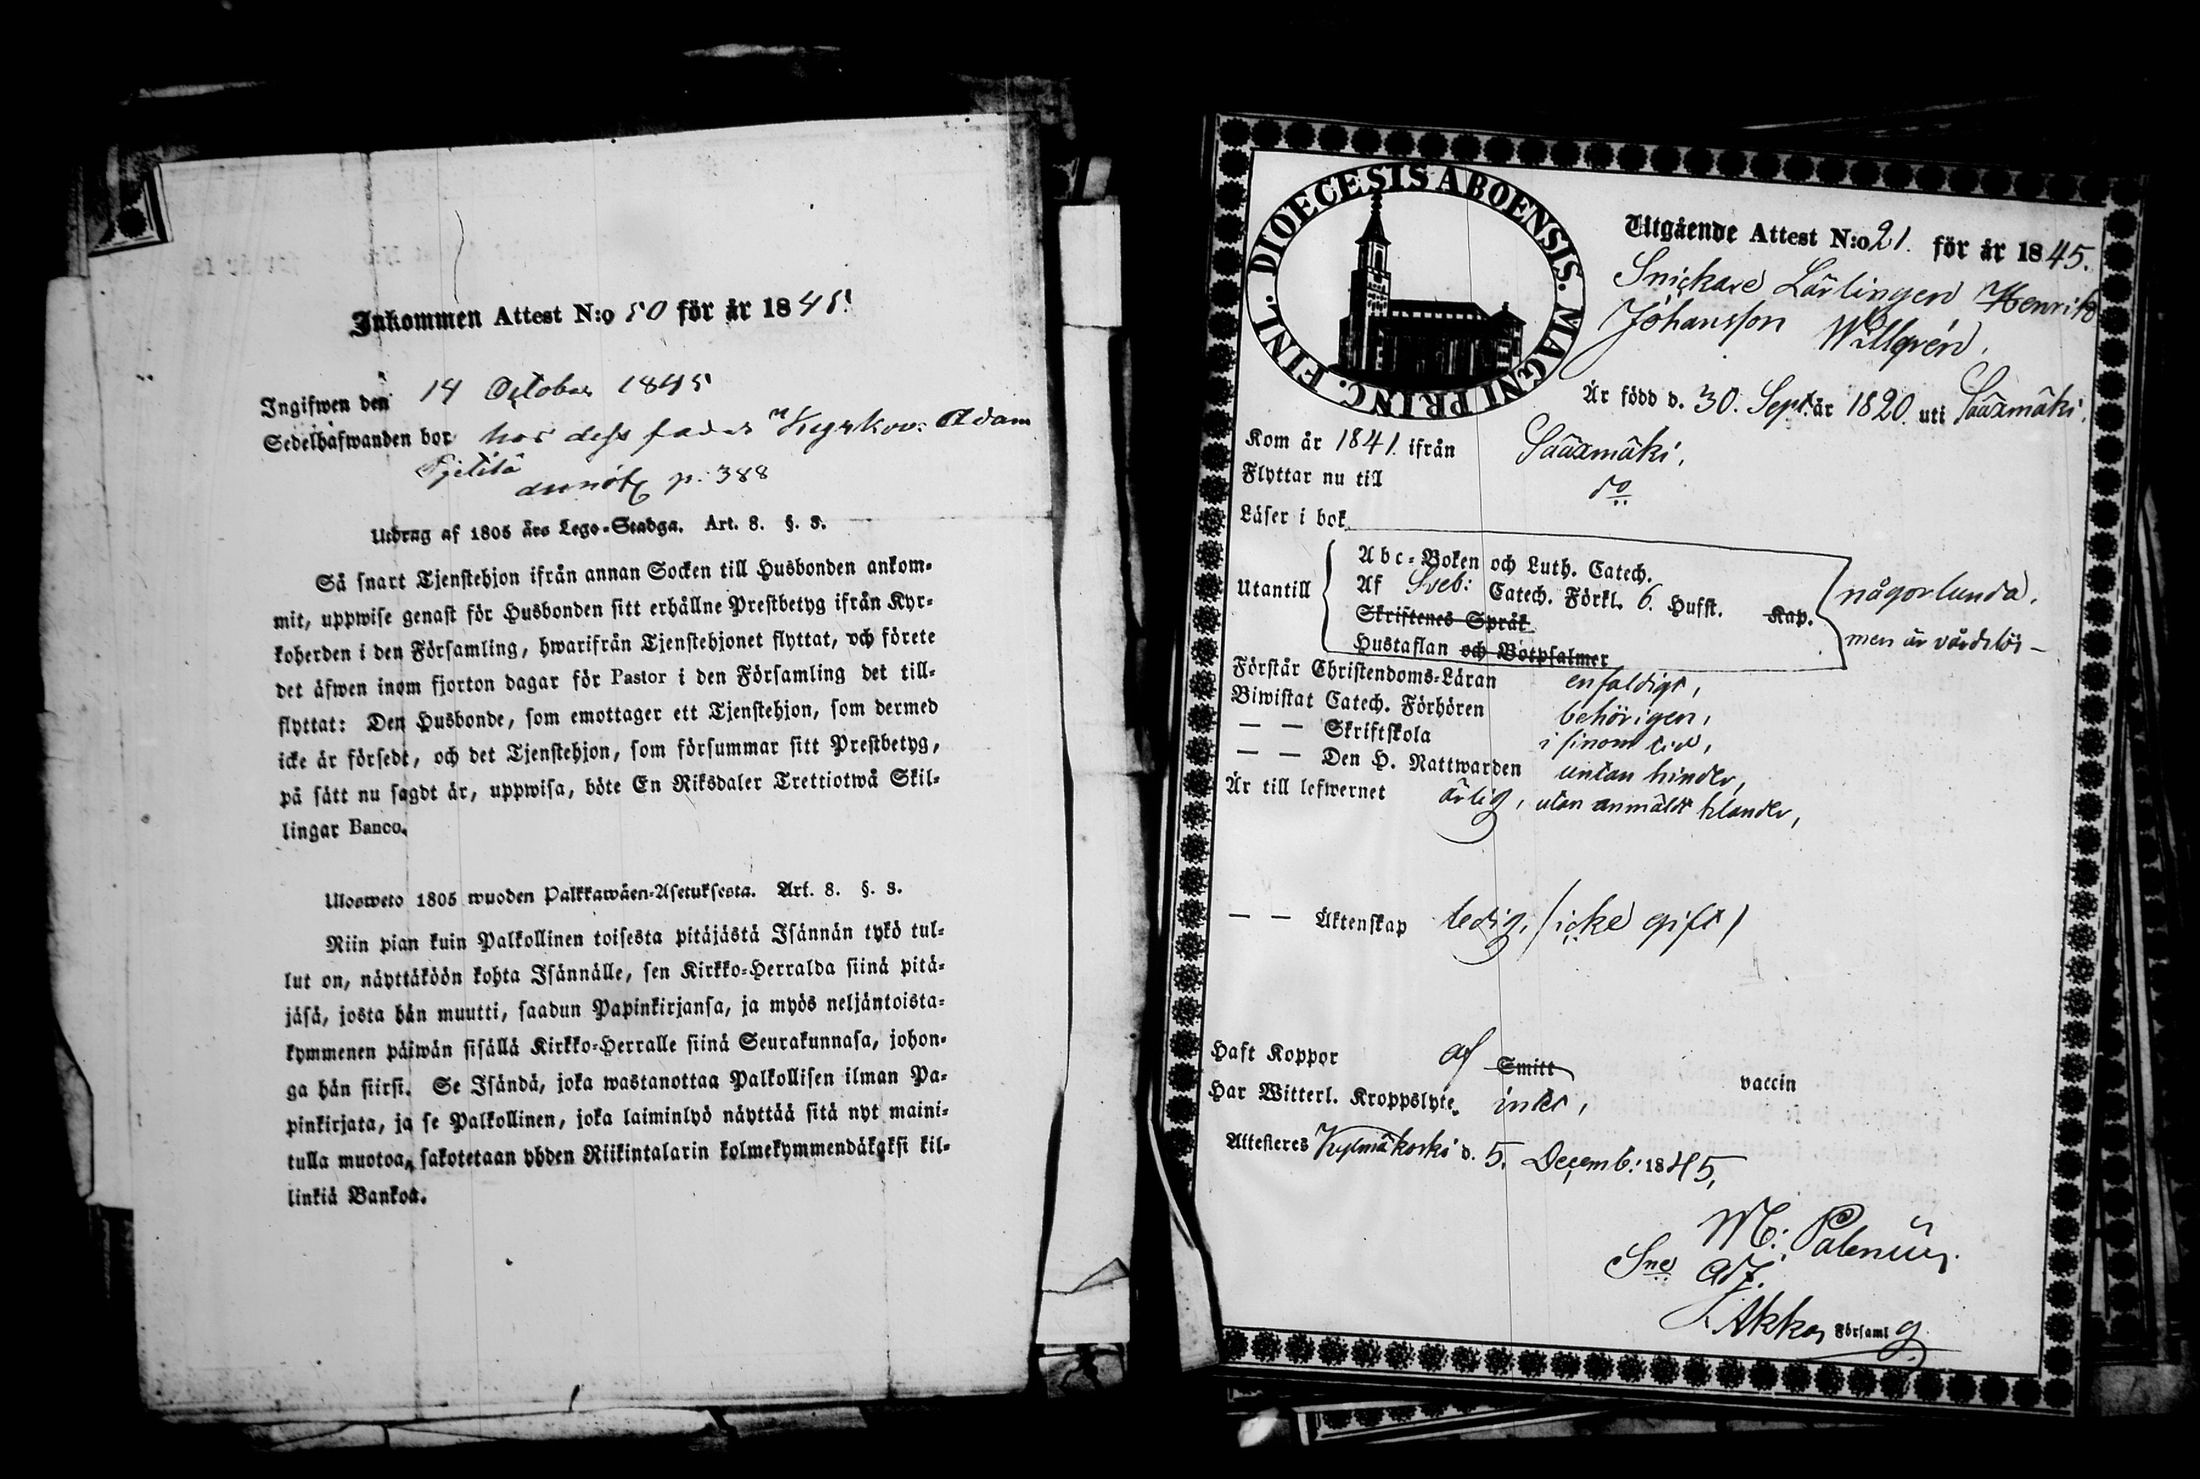 Inkommen Attest N:o 50 för år 1845.
Ingifwen den 14 October 1845
Sedelhafwanden bor hos dess fader Kyrkov: Adam
p. 388
Utdrag af 1805 års Lego-Stadga. Art. 8. §. 3.
Så snart Tjenstehjon ifrån annan Socken till Husbonden ankom-
mit, uppwise genast för Husbonden sitt erhållne Prestbetyg ifrån Kyr-
koherden i den Församling, hwarifrån Tjenstehjonet flyttat, och förete
det äfwen inom fjorton dagar för Pastor i den Församling det till-
flyttat: Den Husbonde, som emottager ett Tjenstehjon, som dermed
icke är försedt, och det Tjenstehjon, som försummar sitt Prestbetyg,
på sätt nu sagdt är, uppwisa, böte En Riksdaler Trettiotwå Skil-
lingar Banco.
Ulosweto 1805 wuoden Palkkawäen-Asetuksesta. Art. 8. §. 3.
Niin pian kuin Palkollinen toisesta pitäjästä Isännän tykö tul-
lut on, näyttäköön kohta Isännälle, sen Kirkko-Herralda siinä pitä-
jäsä, josta hän muutti, saadun Papinkirjansa, ja myös neljäntoista-
kymmenen päiwän sisällä Kirkko-Herralle siinä Seurakunnasa, johon-
ga hän siirsi. Se Isändä, joka wastanottaa Palkollisen ilman Pa-
pinkirjata, ja se Palkollinen, joka laiminlyö näyttää sitä nyt maini-
tulla muotoa, sakotetaan yhden Riikintalarin kolmekymmendäkaksi kil-
linkiä Bankoa.
DIOECESIS ABOENSIS. MAGNI PRINC. FINL.
Utgående Attest N:o 21. för år 1845.
Snickare Lärlingen Henrik
Johansson Willgrén,
Är född d. 30. Sept. år 1820. uti Sääxmäki.
Kom år 1841. ifrån Sääxmäki,
Flyttar nu till do
Läser i bok
Utantill
Abc-Boken och Luth. Catech.
Af Sveb: Catech. Förkl. 6. Hufst. Kap.
Skriftenes Språk
Hustaflan och Botpsalmer
någorlunda,
men är vårdslös
Förstår Christendoms-Läran enfaldigt,
Biwistat Catech. Förhören behörigen,
— — Skriftskola i sinom tid,
— — Den H. Nattwarden utan hinder,
Är till lefwernet ärlig, utan anmäldt klander,
— — Äktenskap ledig, (icke gift)
Haft Koppor af Smitt vaccin
Har Witterl. Kroppslyte intet,
Attesteres Kylmäkoski d. 5. Decemb: 1845,
M: Palenius.
Sne adj.
i Akkas Församlg